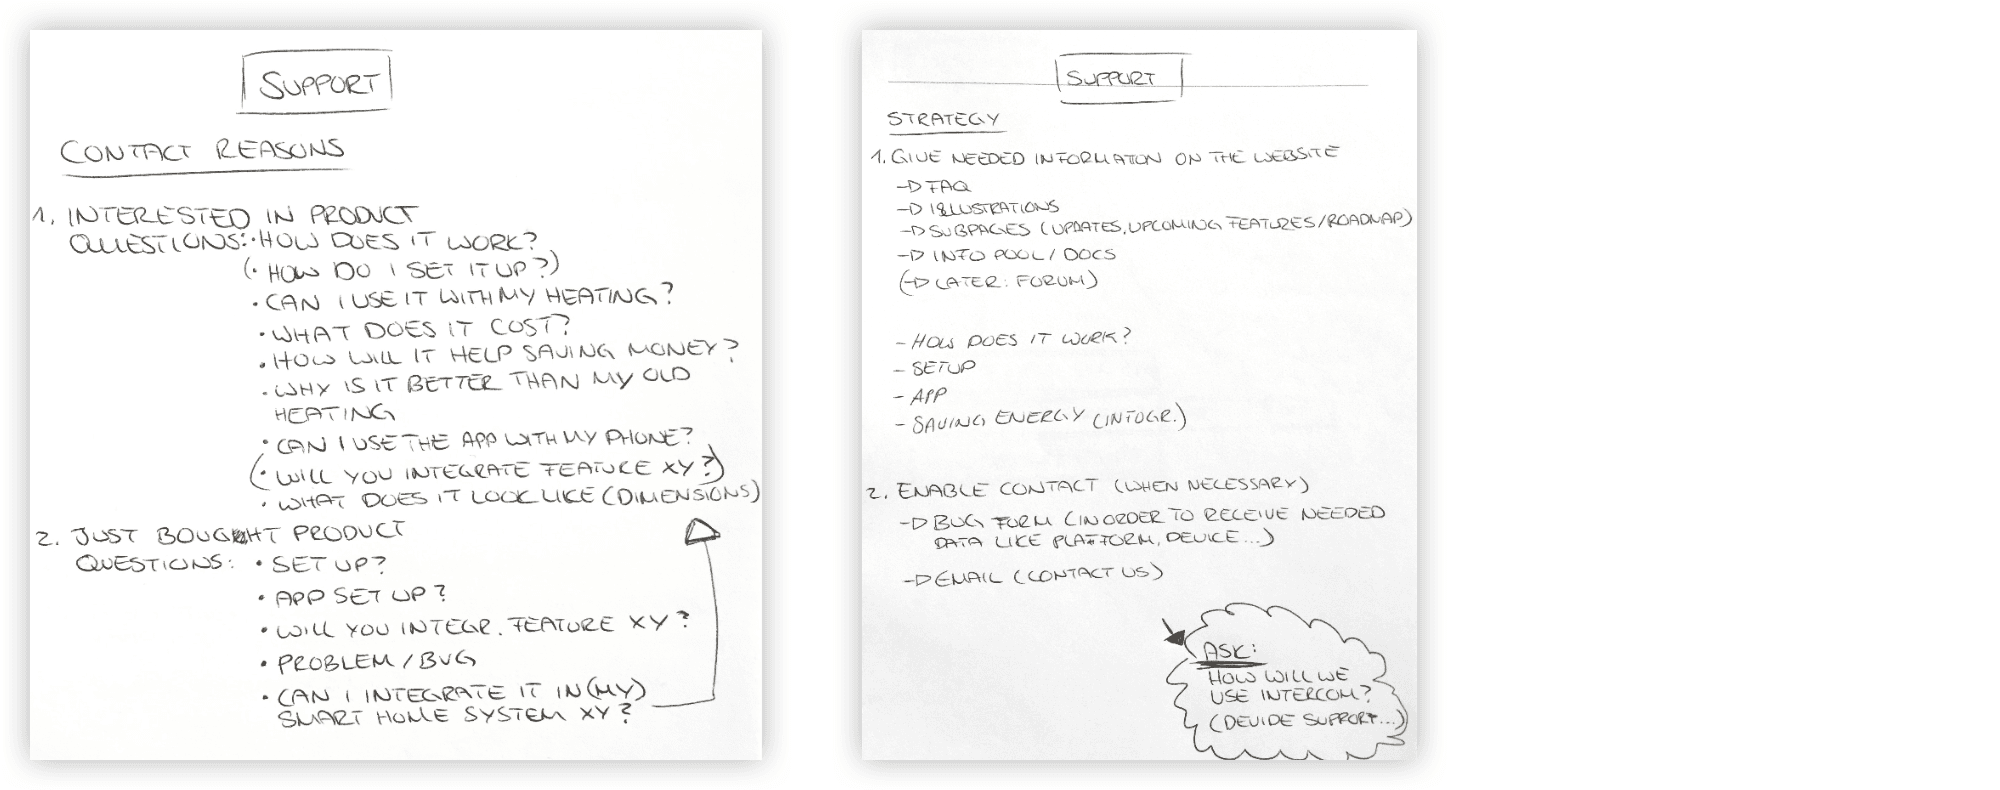 SUPPORT
CONTACT REASONS
1. INTERESTED IN PRODUCT
QUESTIONS: • HOW DOES IT WORK?
(• HOW DO I SET IT UP?)
• CAN I USE IT WITH MY HEATING?
• WHAT DOES IT COST?
• HOW WILL IT HELP SAVING MONEY?
• WHY IS IT BETTER THAN MY OLD
HEATING
• CAN I USE THE APP WITH MY PHONE?
(• WILL YOU INTEGRATE FEATURE XY?)
• WHAT DOES IT LOOK LIKE (DIMENSIONS)
2. JUST BOUGHT PRODUCT
QUESTIONS: • SET UP?
• APP SET UP?
• WILL YOU INTEGR. FEATURE XY?
• PROBLEM / BUG
• CAN I INTEGRATE IT IN (MY)
SMART HOME SYSTEM XY?
SUPPORT
STRATEGY
1. GIVE NEEDED INFORMATION ON THE WEBSITE
→ FAQ
→ ILLUSTRATIONS
→ SUBPAGES (UPDATES, UPCOMING FEATURES/ROADMAP)
→ INFO POOL / DOCS
(→ LATER: FORUM)
- HOW DOES IT WORK?
- SETUP
- APP
- SAVING ENERGY (INFOGR.)
2. ENABLE CONTACT (WHEN NECESSARY)
→ BUG FORM (IN ORDER TO RECEIVE NEEDED
DATA LIKE PLATFORM, DEVICE...)
→ EMAIL (CONTACT US)
ASK:
HOW WILL WE
USE INTERCOM?
(DEVIDE SUPPORT...)